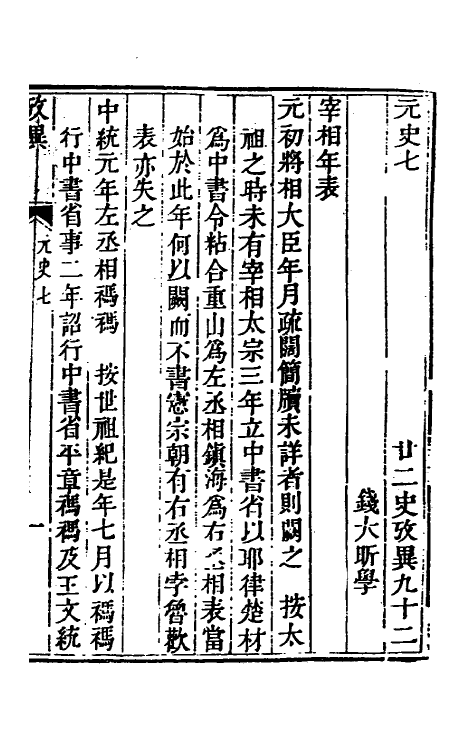 元史七　廿二史攷異九十二
錢大昕學
宰相年表
元初將相大臣年月疏闊簡牘未詳者則闕之　按太
祖之時未有宰相太宗三年立中書省以耶律楚材
爲中書令粘合重山爲左丞相鎮海爲右丞相表當
始於此年何以闕而不書憲宗朝有右丞相孛魯歡
表亦失之
中統元年左丞相禡禡　按世祖紀是年七月以禡禡
行中書省事二年詔行中書省平章禡禡及王文統
攷異　元史七　一